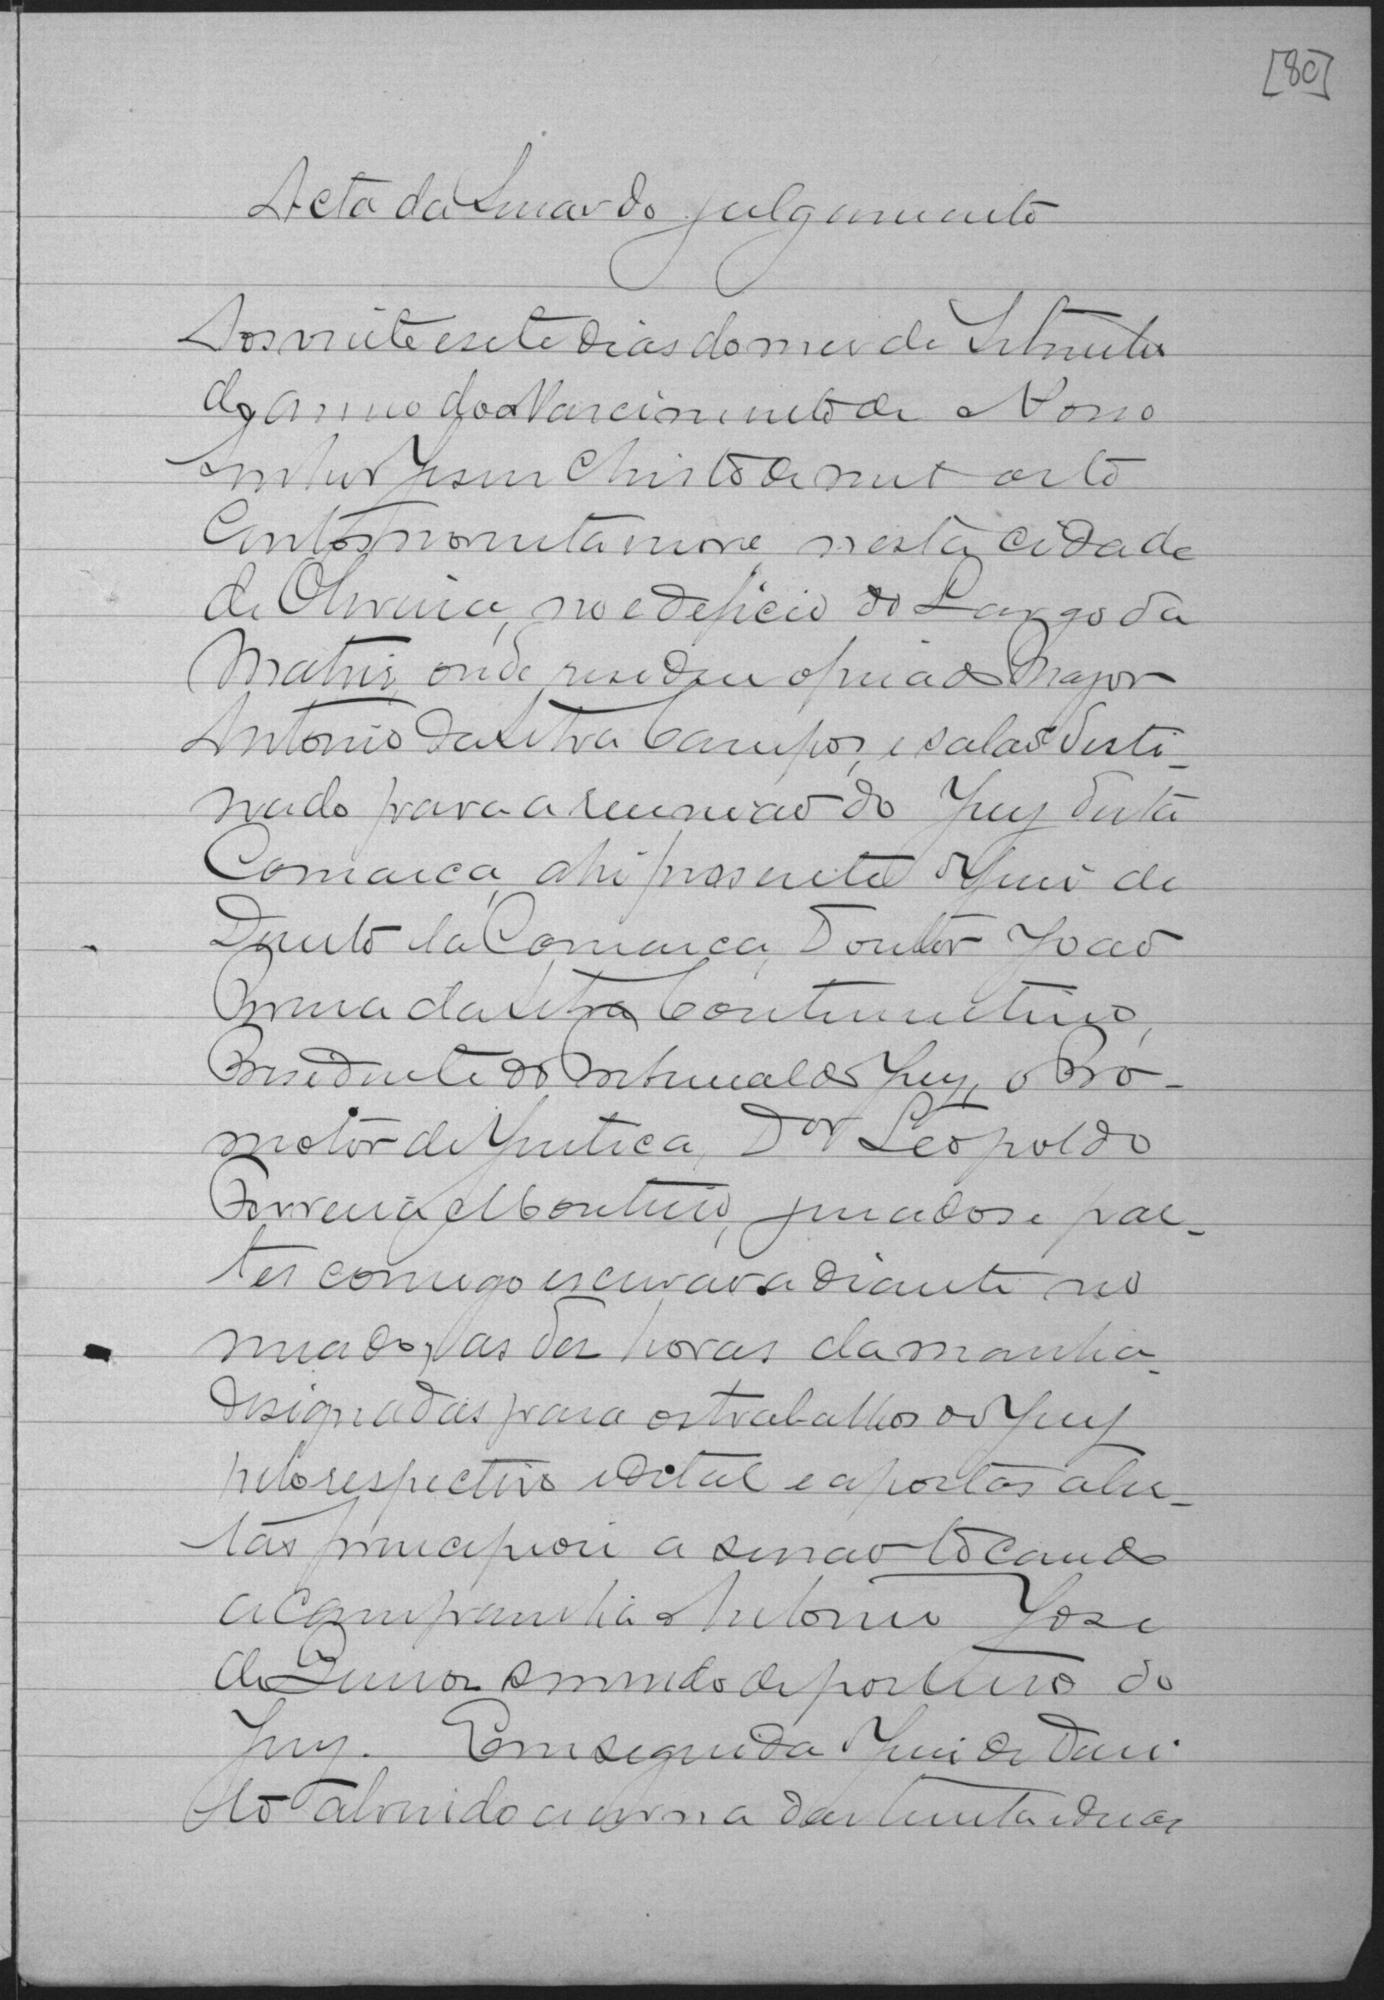 [80]
Acta da Sessão do julgamento
Aos vinte e sete dias do mes de Setembro
do anno do Nascimento de Nosso
Senhor Jesus Christo de mil oito
Centos noventa nove, nesta cidade
de Oliveira, no edeficio do Largo da
Matriz, onde reside o finado Major
Antonio da Silva Campos, e salão desti-
nado para a reunião do Jury desta
Comarca, ahi presente o Juis de
Direito da Comarca, Doutor João
da Silva
Presidente do Tribunal do Jury, o Pro-
motor de Justica, Dor Leopoldo
Ferreira Monteiro, jurados e par-
tes comigo escrivão adiante no
meado, as des horas da manhã
designadas para os trabalhos do Jury
pelo respectivo edital e a portas aber-
tas principiou a sessão tocando
a campainha Antonio Jose
de servindo de porteiro do
Jury. Em seguida o Juis de Direi
to abrindo a urna das trinta e duas